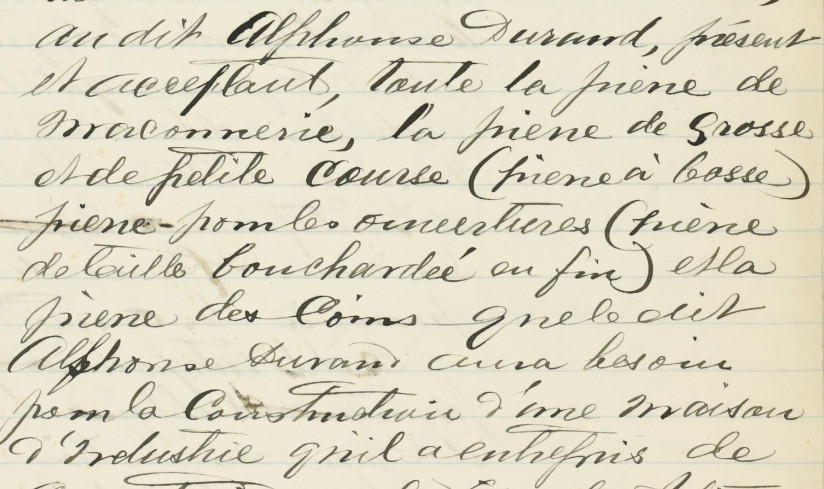 au dit Alphonse Durand, présent
et acceptant, toute la pierre de
maçonnerie, la pierre de grosse
et de petite course (pierre à bosse)
pierre pour les ouvertures (pierre
de taille bouchardée en fin) et la
pierre des Coins que le dit
Alphonse Durand aura besoin
pour la Construction d'une maison
d'Industrie qu'il a entrepris de